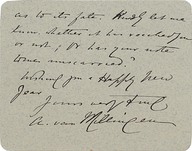 as to its fate. Kindly let me
know, whether it has reached you
or not, or has your note
to me miscarried."
Wishing you a Happy New
Year
Yours very truly
A. van Millingen